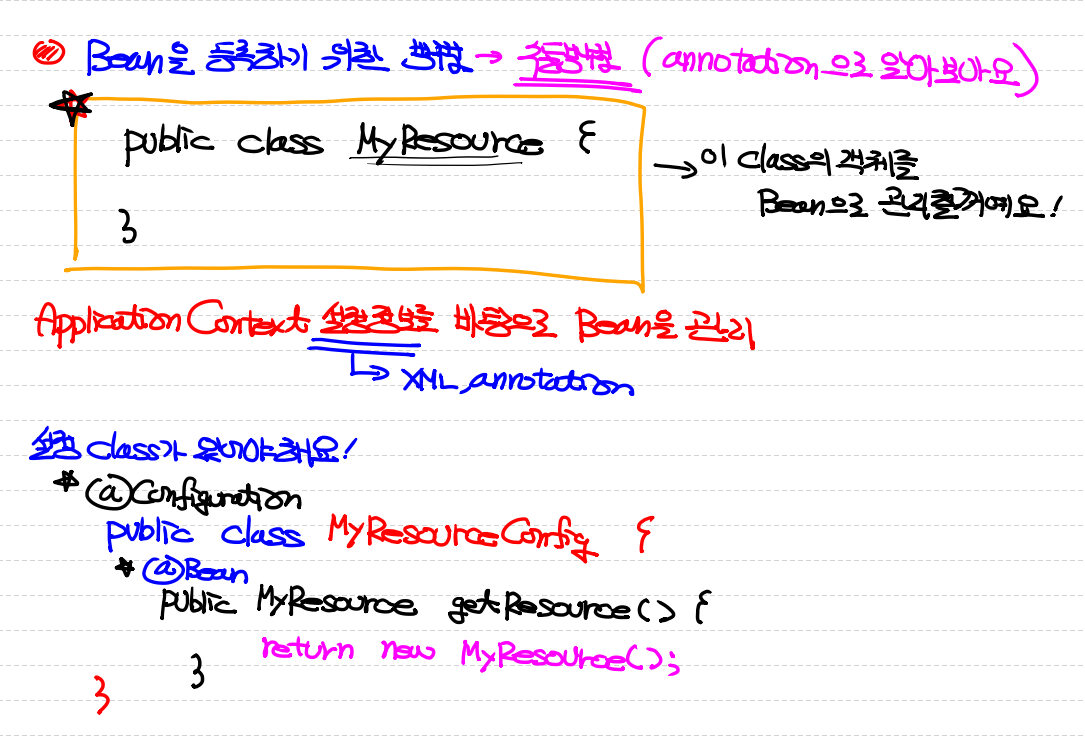 Bean을 등록하기 위한 방법 → 수동방법 (annotation으로 알아보아요)
public class MyResource {
}
→ 이 class의 객체를
Bean으로 관리할꺼예요!
Application Context 설정정보를 바탕으로 Bean을 관리
→ XML, annotation
설정 class가 있어야해요!
@Configuration
public class MyResourceConfig {
@Bean
public MyResource getResource() {
return new MyResource();
}
}